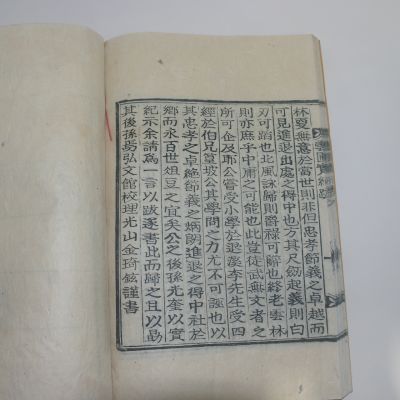 林夏無意於當世則非但忠孝節義之卓越而
可見進退出處之得中也方其尺劒起義則白
刃可蹈也北風詠歸則爵祿可辭也終老雲林
則亦庶乎中庸之可能也此豈徒武無文者之
所可企及耶公嘗受小學於退溪李先生受四
經於伯兄篁坡公其學問之力尤不可誣也以
其忠孝之卓絶節義之炳朗進退之得中社於
鄉而永百世俎豆之宜矣公之後孫光奎以實
紀示余請爲一言以跋遂書此而歸之且以勗
其後孫焉弘文館校理光山金琦鉉謹書